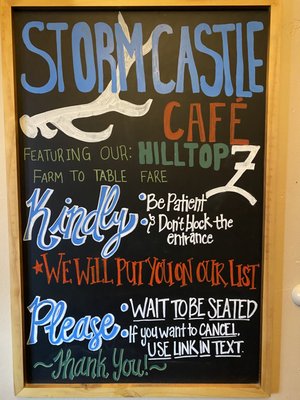 STORM CASTLE
CAFÉ
FEATURING OUR: HILLTOP 7
FARM TO TABLE FARE
Kindly • Be Patient
• & Don't block the
entrance
★WE WILL PUT YOU ON OUR LIST
Please • WAIT TO BE SEATED
• If you want to CANCEL,
USE LINK IN TEXT.
~Thank You!~